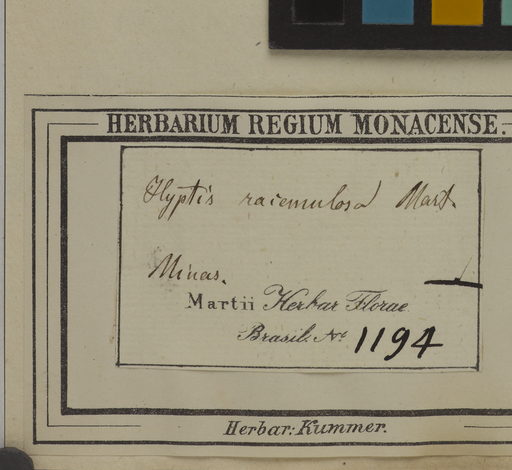 HERBARIUM REGIUM MONACENSE.
Hyptis racemulosa Mart.
Minas.
Martii Herbar. Florae
Brasil. No 1194
Herbar: Kummer.